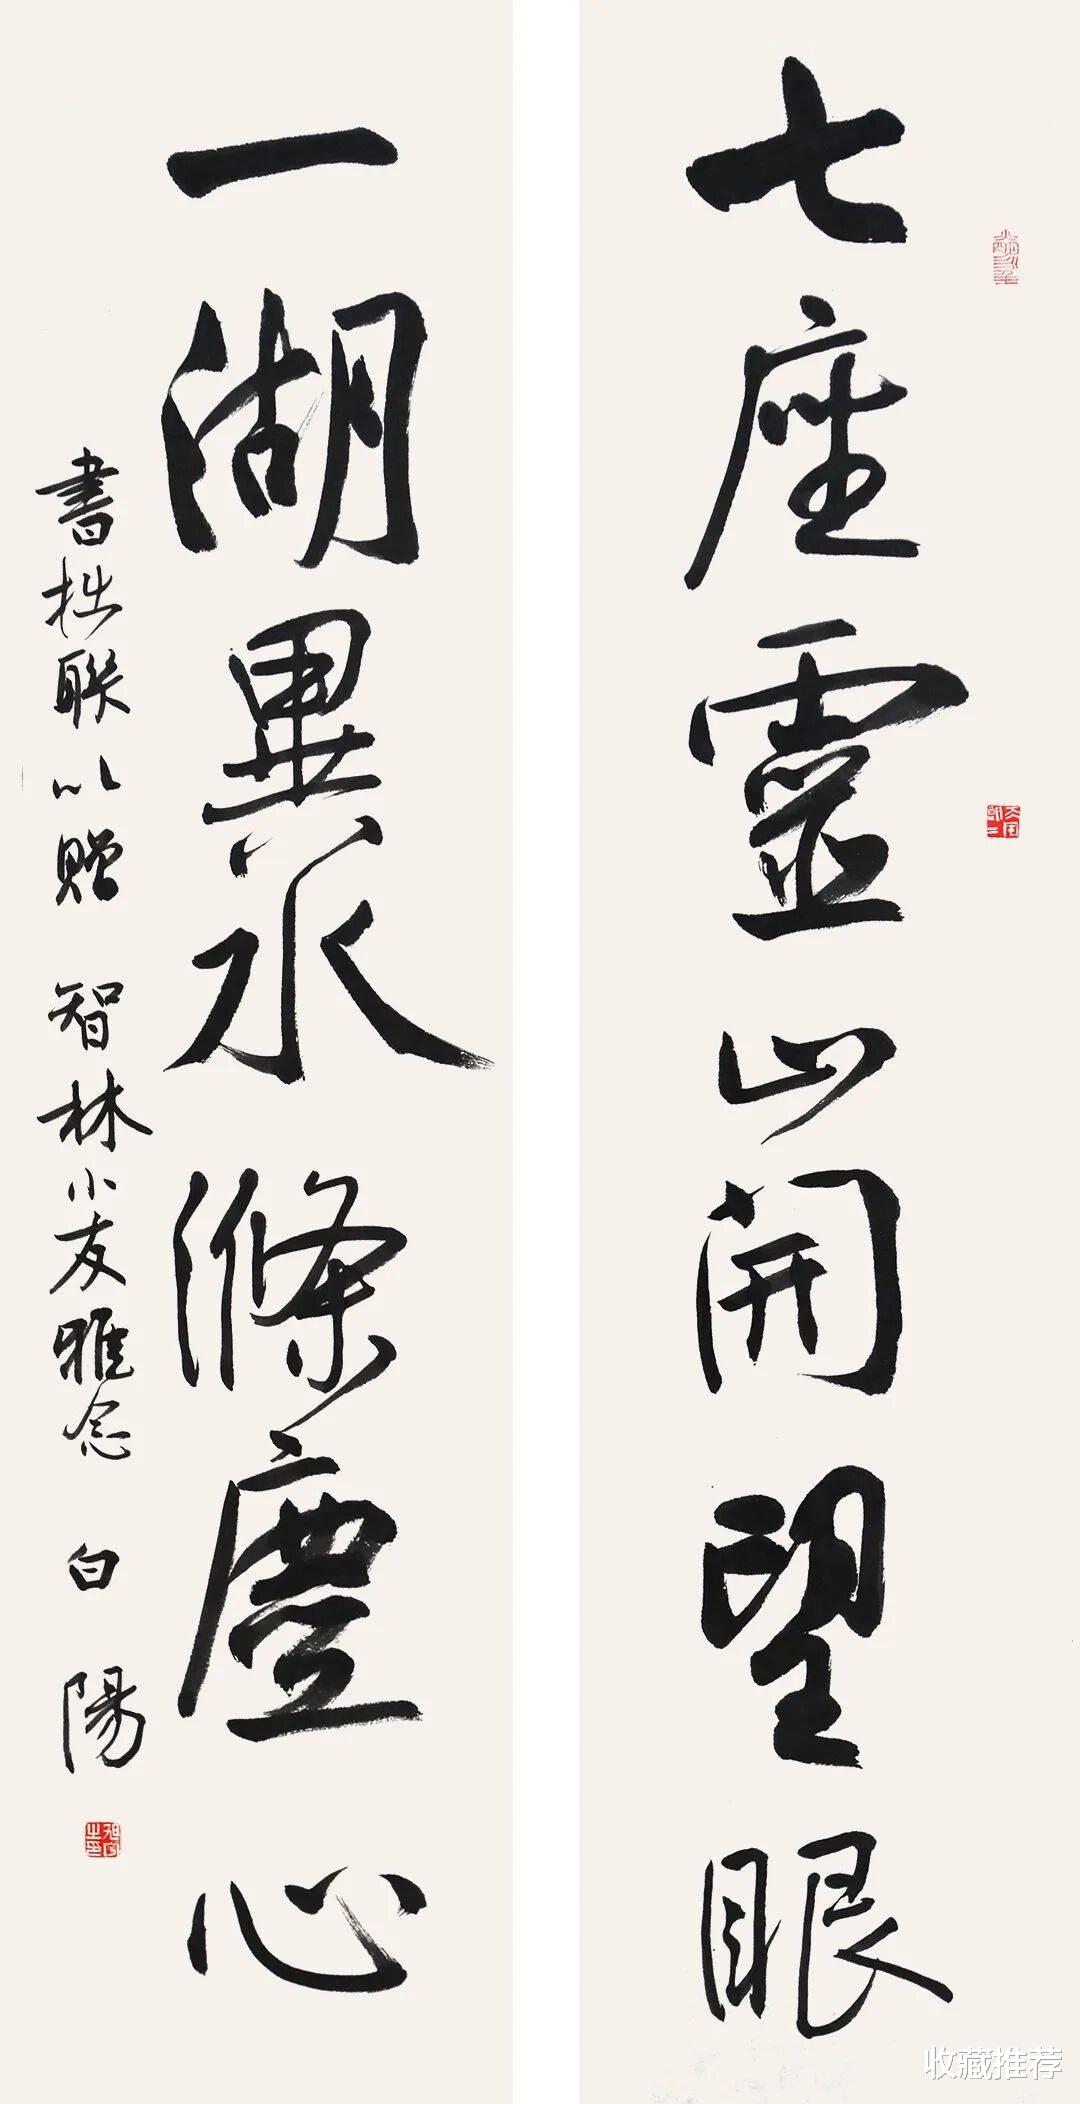 七座靈山開望眼
一湖異水滌塵心
書拙聯以贈 智林小友雅念 白陽
收藏推荐